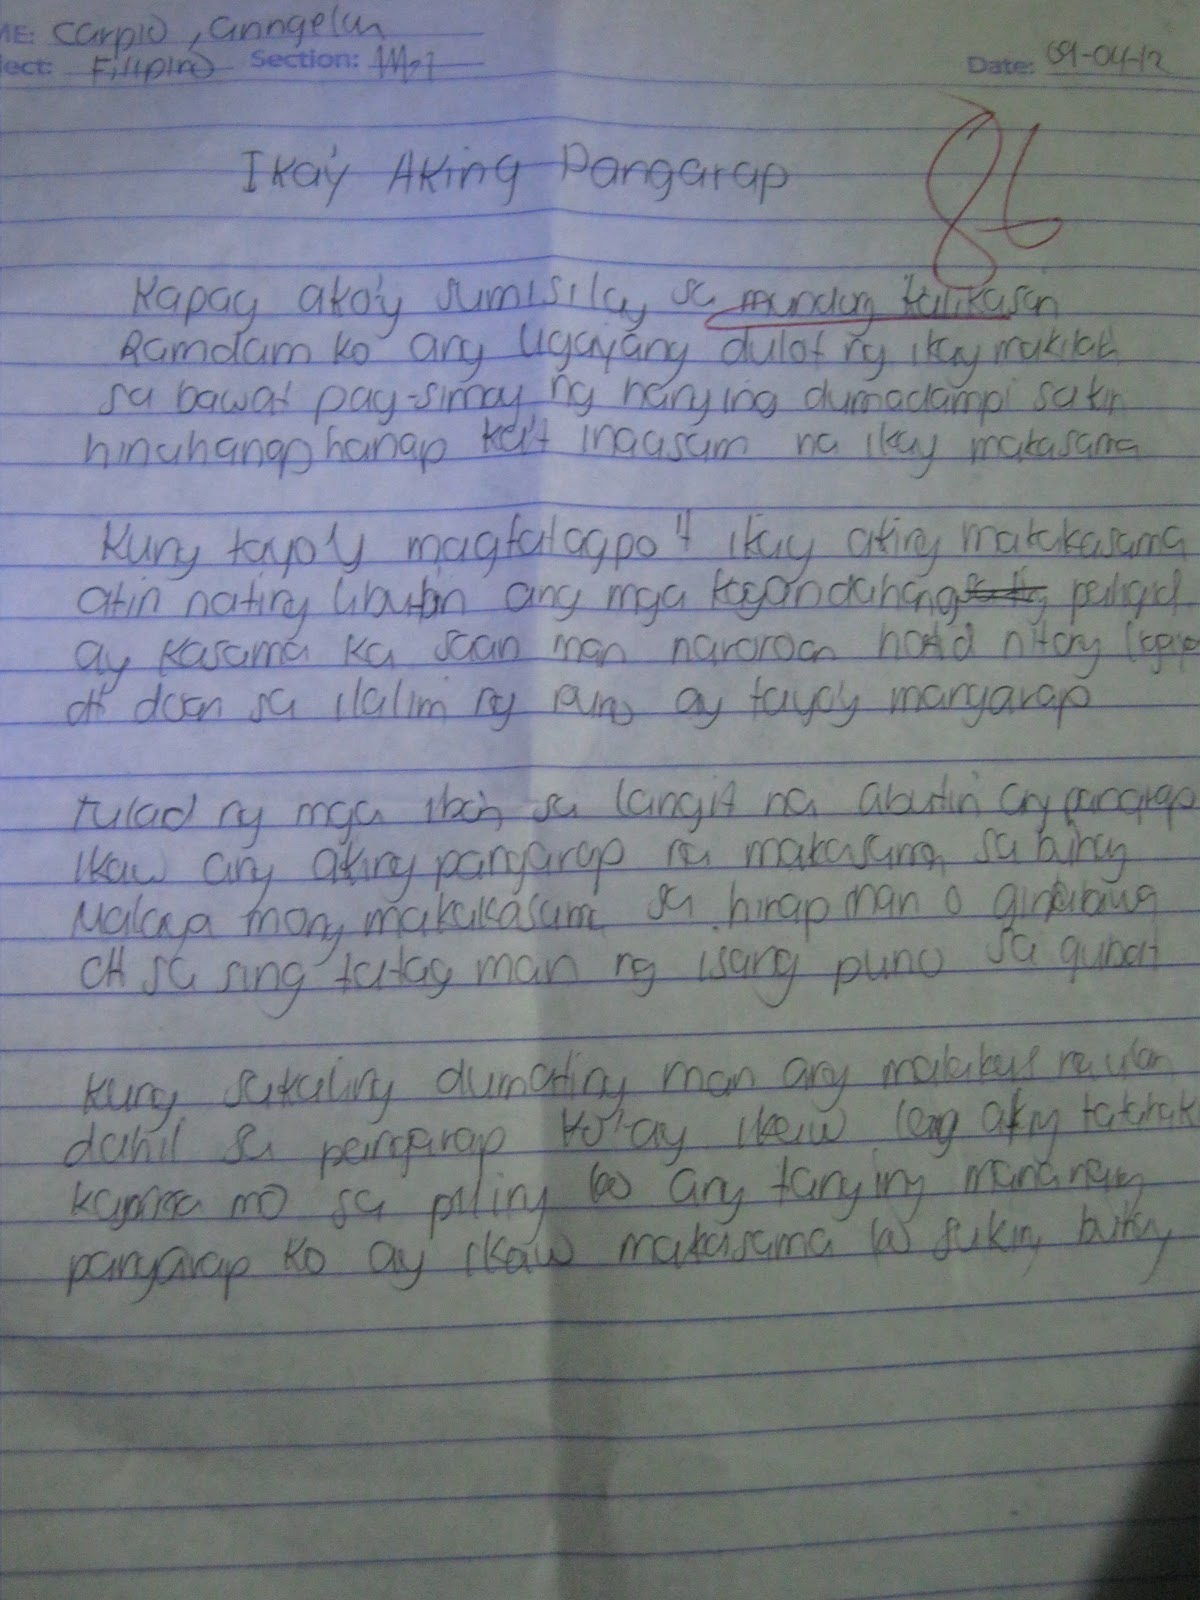 ME: Carpio, anngelun
ject: Filipino Section: Date: 09-04-12
86
Ikay Aking Pangarap
Kapag ako'y sumisilay sa mundong kalikasan
Ramdam ko ang ligayang dulot ng ikay makilala
sa bawat pag-simoy ng hanging dumadampi sakin
hinahanaphanap ka't inaasam na ikay makasama
Kung tayo'y magtatagpo't ikay aking makakasama
atin nating libutin ang mga kagandahang paligid
ay kasama ka saan man naroroon hatid nitoy
at doon sa ilalim ng puno ay tayo'y mangarap
tulad ng mga ibon sa langit na abutin ang pangarap
ikaw ang aking pangarap na makasama sa buhay
Malaya mong makakasama sa hirap man o ginhawa
at sa sing tatag man ng isang puno sa gubat
kung sakaling dumating man ang malakas na ulan
dahil sa pangarap ko'ay ikaw lang aking
kapiling mo sa piling ko ang tanging
pangarap ko ay ikaw makasama ko sakin buhay